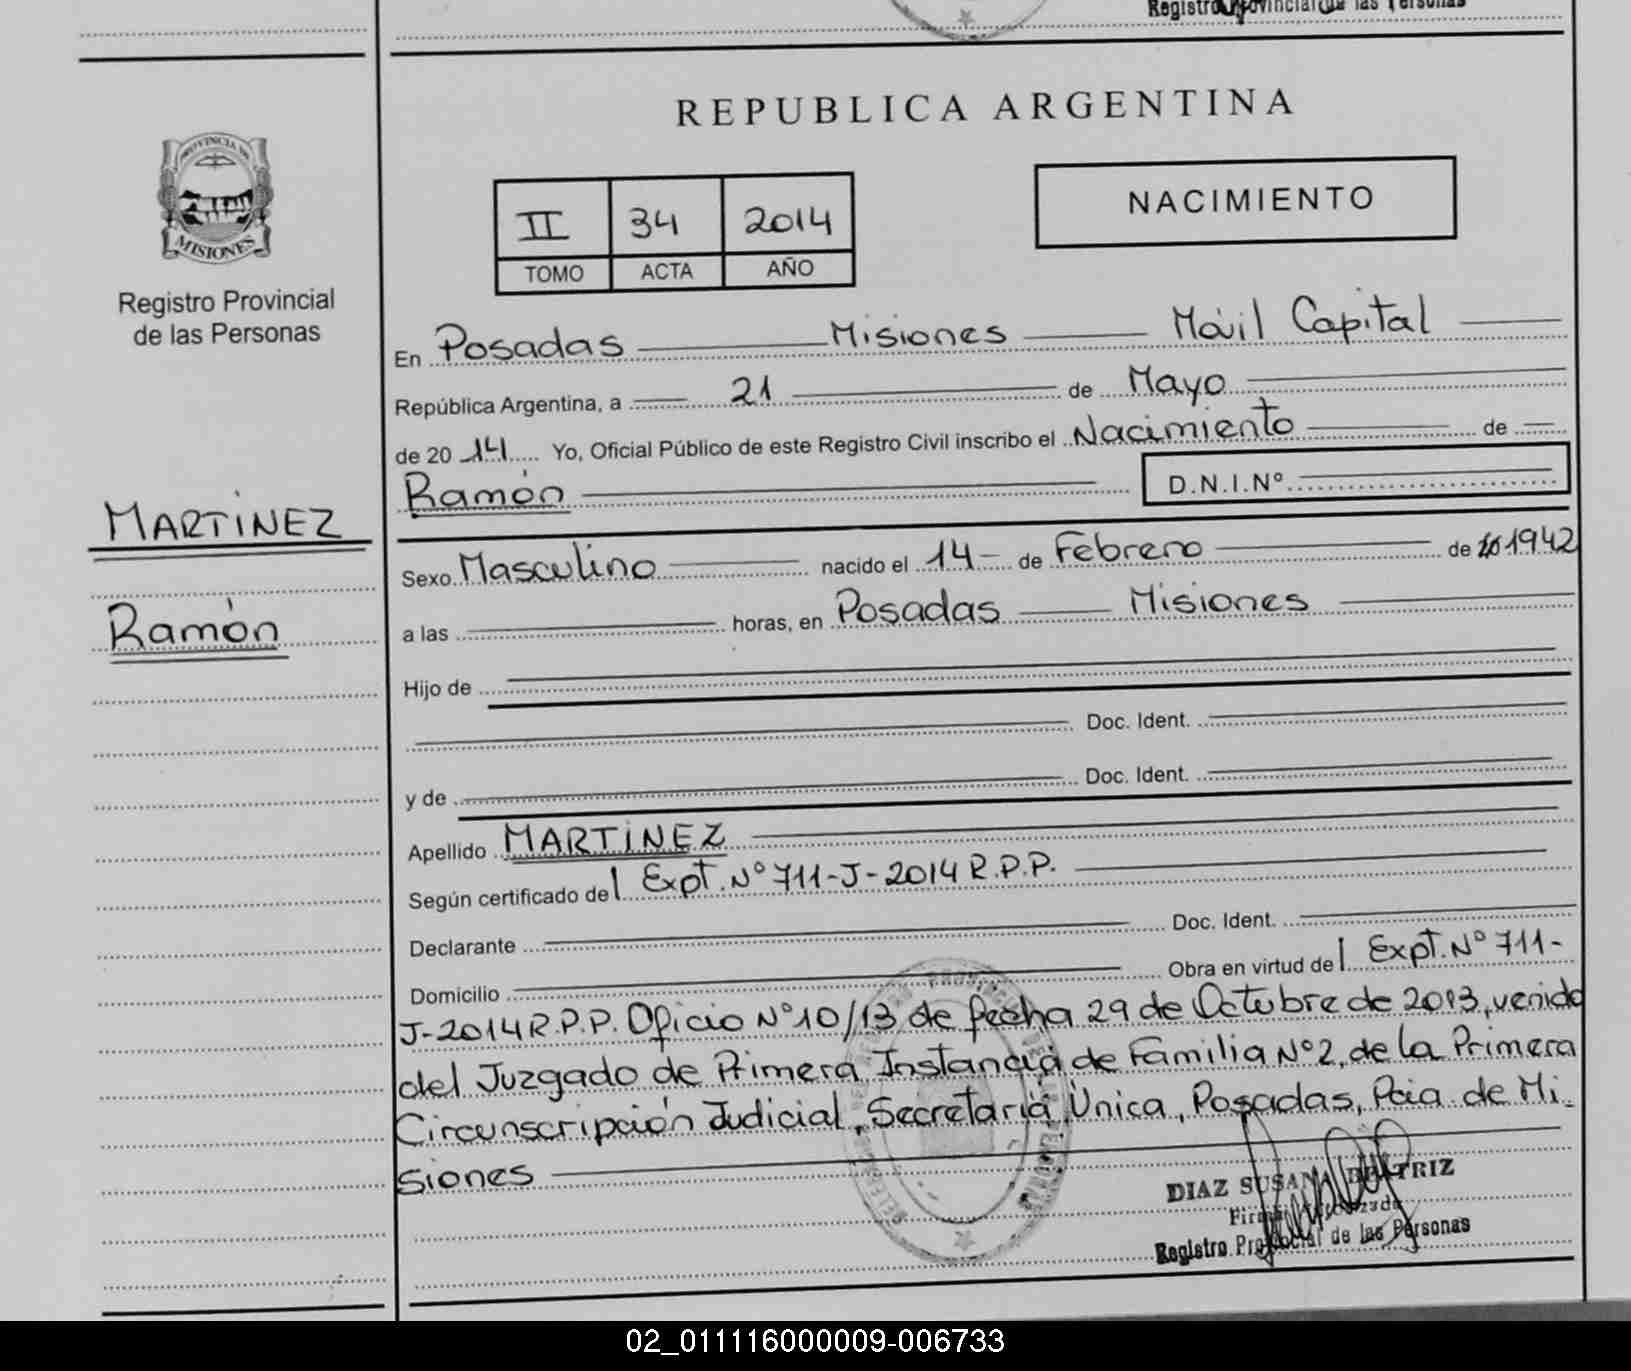 Registro Provincial de las Personas
REPUBLICA ARGENTINA
PROVINCIA DE
MISIONES
Registro Provincial
de las Personas
II 34 2014
TOMO ACTA AÑO
NACIMIENTO
En Posadas Misiones Móvil Capital
República Argentina, a 21 de Mayo
de 2014 Yo, Oficial Público de este Registro Civil inscribo el Nacimiento de
Ramón D.N.I.Nº
MARTINEZ
Ramón
Sexo Masculino nacido el 14 de Febrero de 1942
a las horas, en Posadas Misiones
Hijo de
Doc. Ident.
y de Doc. Ident.
Apellido MARTINEZ
Según certificado del Expt. Nº 711-J-2014 R.P.P.
Declarante Doc. Ident.
Domicilio Obra en virtud del Expt. Nº 711-
J-2014 R.P.P. Oficio Nº 10/13 de fecha 29 de Octubre de 2013, venido
del Juzgado de Primera Instancia de Familia Nº 2, de la Primera
Circunscripción Judicial, Secretaria Única, Posadas, Pcia. de Mi-
siones
DIAZ SUSANA BEATRIZ
Registro Provincial de las Personas
02_011116000009-006733